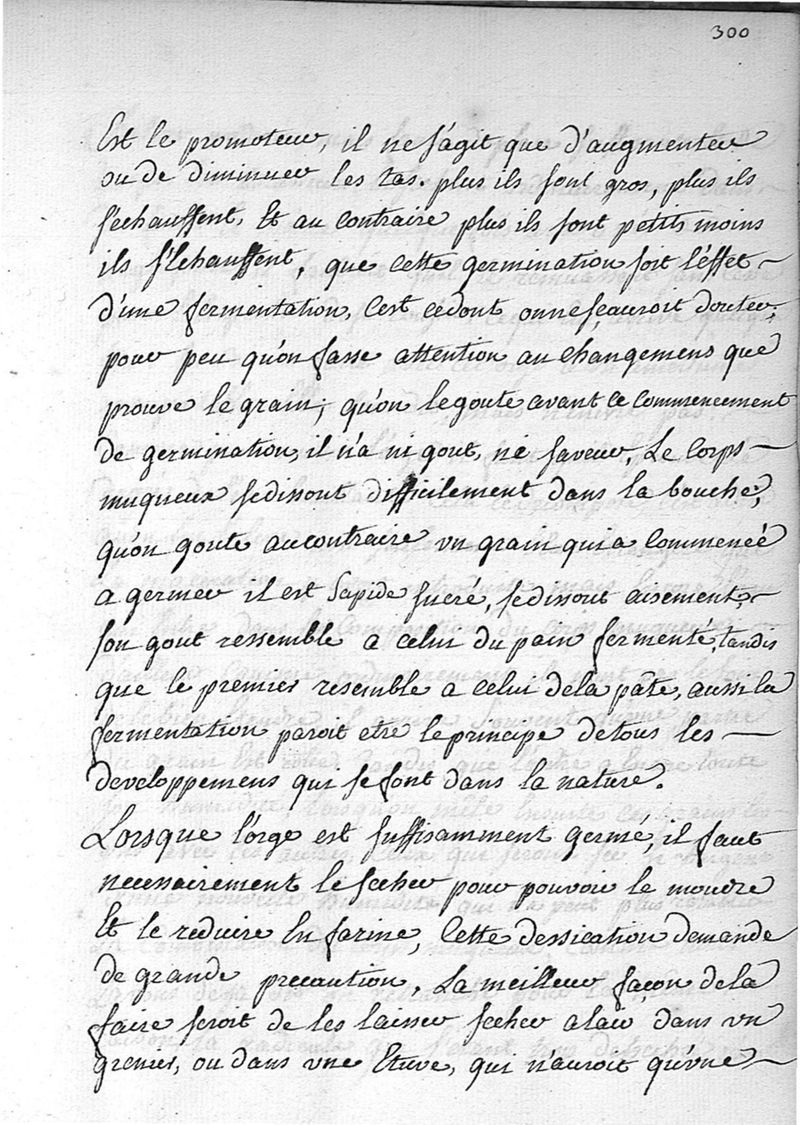 300
Est le promoteur, il ne s'agit que d'augmenter
ou de diminuer les tas. plus ils sont gros, plus ils
s'echauffent, Et au contraire plus ils sont petits moins
ils s'Echauffent, que cette germination soit l'éffet
d'une fermentation, C'est ce dont on ne sçauroit douter,
pour peu qu'on fasse attention au changemens que
prouve le grain; qu'on le goute avant ce commencement
de germination, il n'a ni gout, né saveur, Le Corps
muqueux se dissout difficilement dans la bouche,
qu'on goute au contraire un grain qui a Commencé
a germer il est Sapide sucré, se dissout aisement,
son gout ressemble a celui du pain fermenté, tandis
que le premier resemble a celui de la pâte, aussi la
fermentation paroit etre le principe de tous les
developpemens qui se font dans la nature.
Lorsque l'orge est suffisamment germé, il faut
necessairement le secher pour pouvoir le moudre
Et le reduire En farine, Cette dessication demande
de grande precaution, La meilleur façon de la
faire seroit de les laisser secher a l'air dans un
grenier, ou dans une Etuve, qui n'auroit qu'une